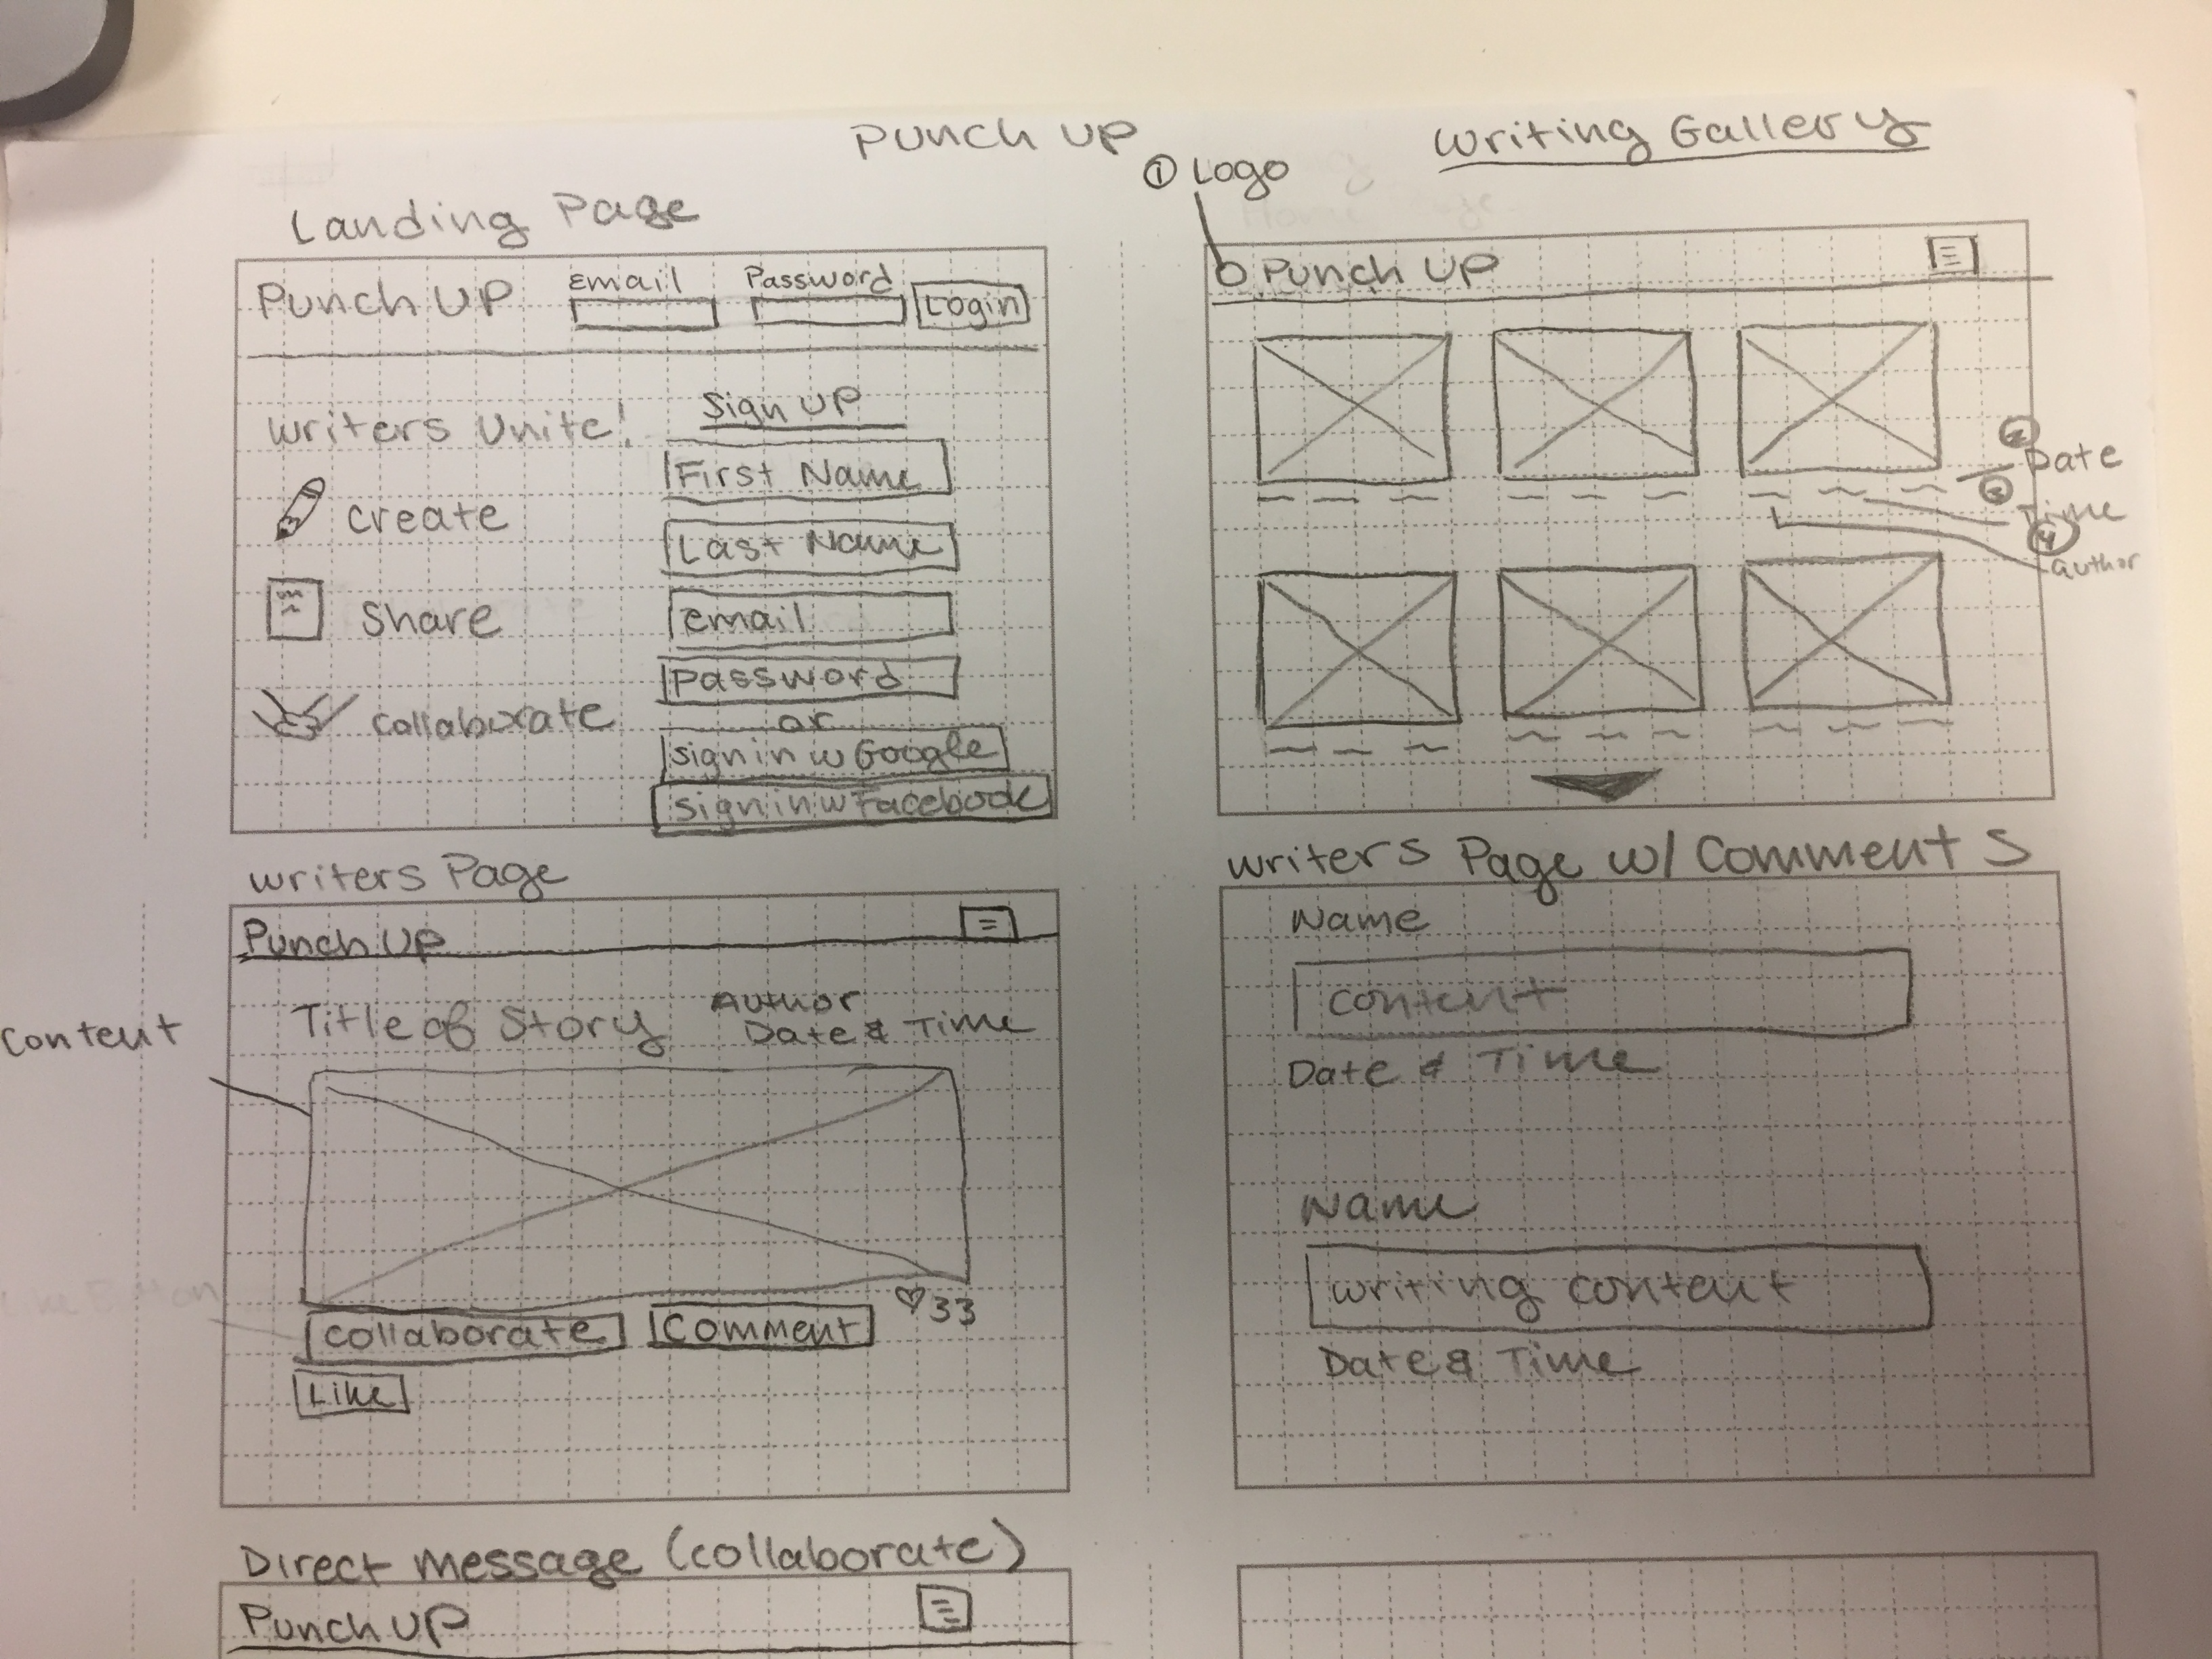 Punch UP
Writing Gallery
① Logo
Landing Page
Punch UP
Email
Password
Login
Writers Unite!
create
Share
collaborate
Sign UP
First Name
Last Name
email
Password
or
sign in w Google
sign in w Facebook
Punch UP
② Date
③ Time
④ author
Writers Page
Punch UP
Title of Story
Author
Date & Time
Content
collaborate
Comment
♡ 33
Like
Writers Page w/ Comments
Name
Content
Date & Time
Name
Writing content
Date & Time
Direct Message (collaborate)
Punch UP